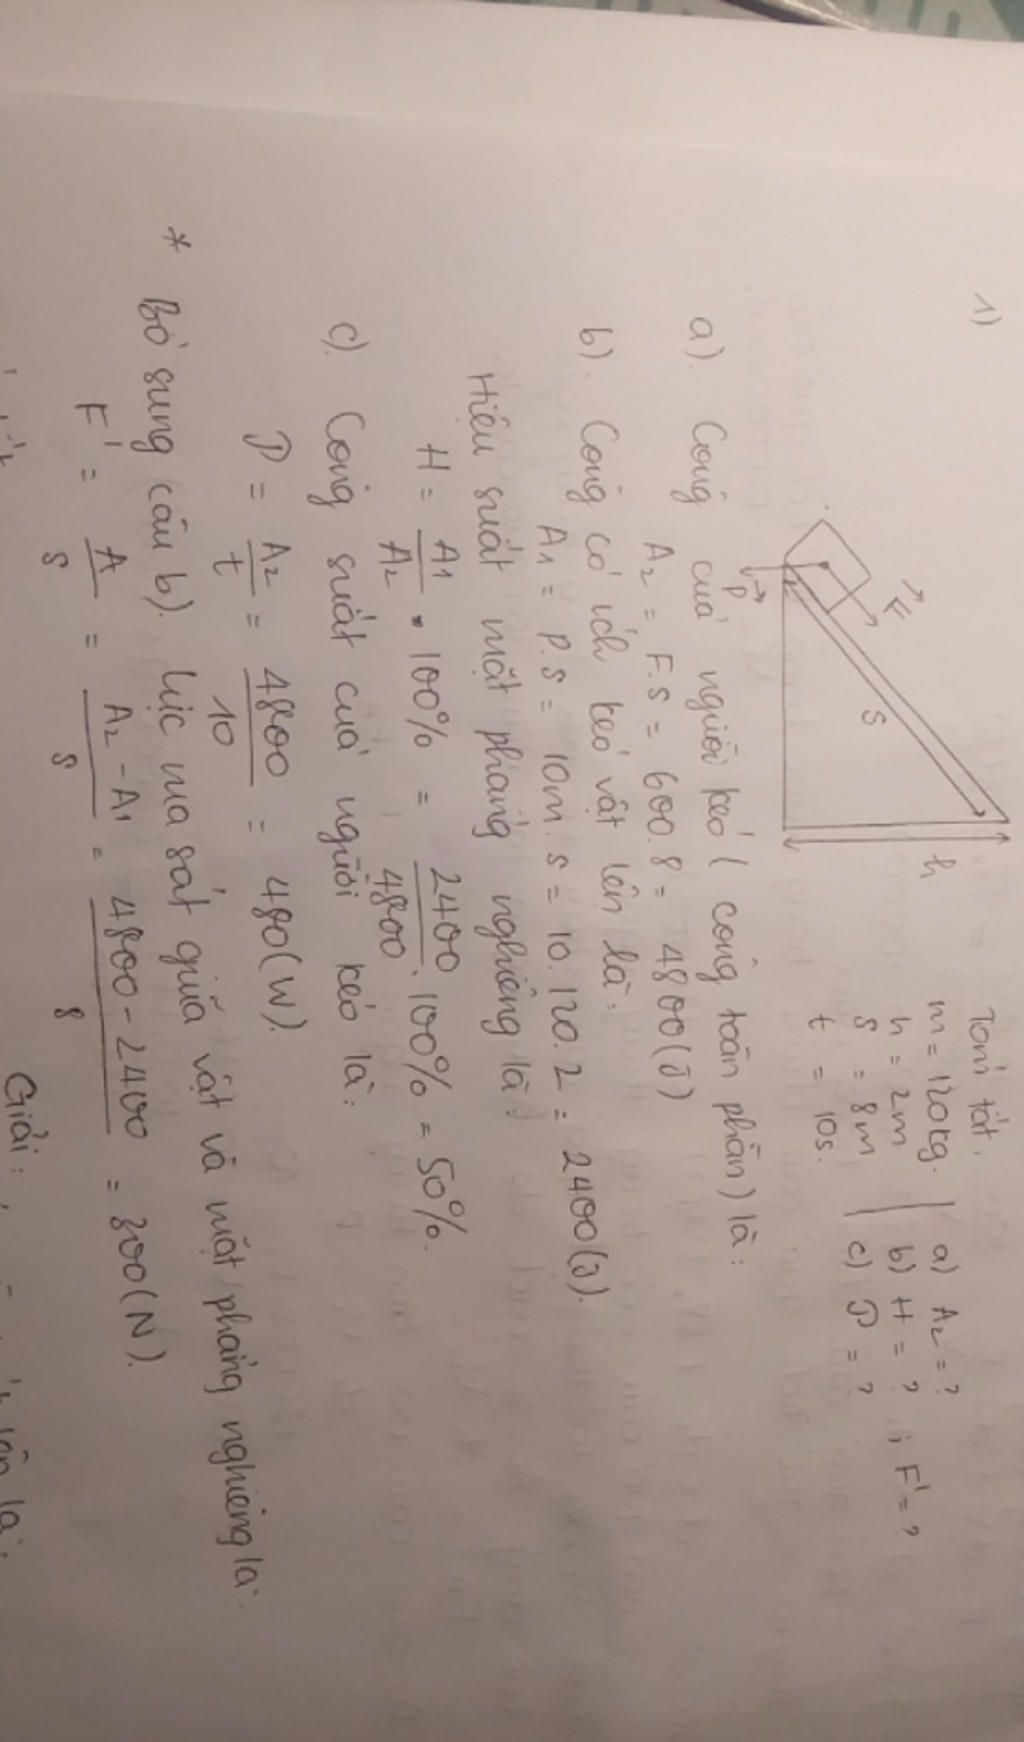 1)
F
P
s
h
Tóm tắt.
m = 120kg. | a) A2 = ?
h = 2m | b) H = ? ; F' = ?
s = 8m | c) P = ?
t = 10s.
a). Công của người kéo (công toàn phần) là:
A2 = F.s = 600.8 = 4800(J)
b). Công có ích kéo vật lên là:
A1 = P.s = 10m.s = 10.120.2 = 2400(J).
Hiệu suất mặt phẳng nghiêng là:
H = A1/A2 . 100% = 2400/4800 . 100% = 50%.
c). Công suất của người kéo là:
P = A2/t = 4800/10 = 480(W).
* Bổ sung câu b). lực ma sát giữa vật và mặt phẳng nghiêng là:
F' = A/s = A2 - A1/s = 4800 - 2400/8 = 300(N).
Giải:
lên là: